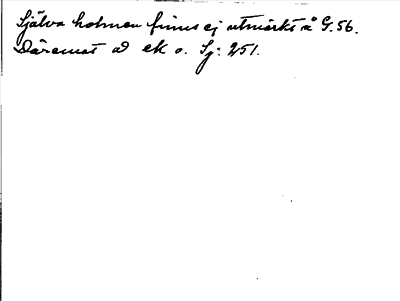 Själva holmen finns ej utmärkt å G. 56.
Däremot å ek o. Sj: 251.